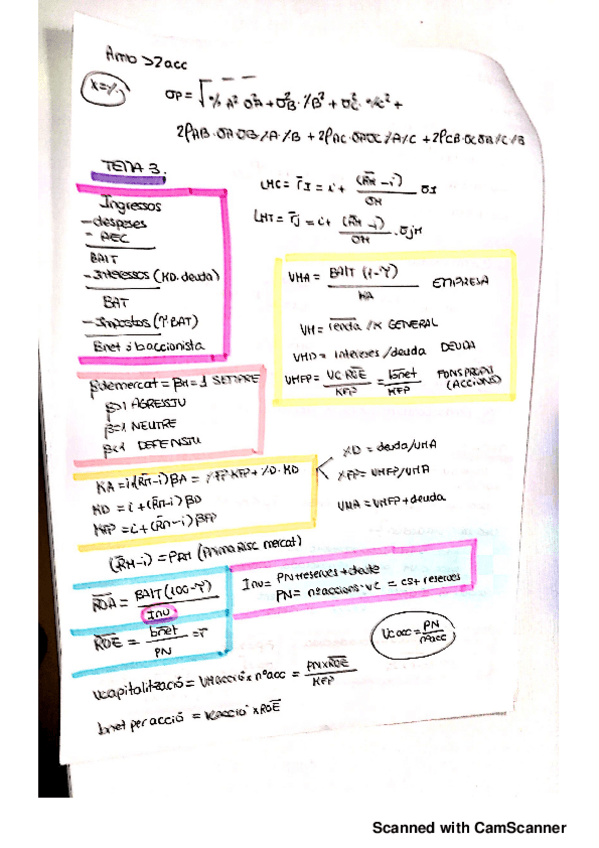 Amb >2acc
X=%
σP = √% A² σ²A + σ²B · %B² + σ²C · %C² +
2ρAB · σA σB %A · %B + 2ρAC · σAσC %A %C + 2ρCB · σC σB %C %B
TEMA 3.
Ingressos
- despeses
- AEC
BAIT
- Interessos (KD. deuda)
BAT
- Impostos (T · BAT)
Bnet i baccionista
LMC = r̄I = i + (R̄M - i) / σM σI
LMT = r̄j = i + (R̄M - i) / σM · σjM
VMA = BAIT (1-T) / KA EMPRESA
VM = renda / K GENERAL
VMD = interesos / deuda DEUDA
VMFP = VC R̄OE / KFP = b̄net / KFP FONS PROPI (ACCIONS)
β de mercat = βM = 1 SEMPRE
β>1 AGRESSIU
β=1 NEUTRE
β<1 DEFENSIU
KA = i(R̄M-i) βA = %FP · KFP + %D · KD
KD = i + (R̄M-i) βD
KFP = i + (R̄M-i) βFP
XD = deuda/VMA
XFP = VMFP/VMA
VMA = VMFP + deuda
(R̄M-i) = PRM (Prima Risc mercat)
R̄OA = BAIT (100-T) / Inv
R̄OE = b̄net / PN = r̄
Inv = PN+reserves + deute
PN = nºaccions · VC = CS + reserves
Vc acc = PN / nºacc
Vcapitalització = VMacció x nºacc = PN x R̄OE / KFP
bnet per acció = Vcacció x R̄OE
Scanned with CamScanner